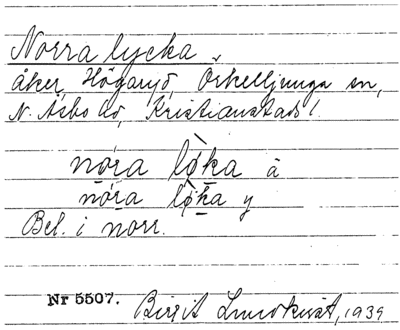 Norra lycka
åker, Högaryd, Örkelljunga sn,
N. Åsbo hd, Kristianstads l.
nó̱ra lø̀ḵa ä
nó̱ra lø̀ḵa y
Bel. i norr.
Nr 5507. Birgit Lundkvist, 1939